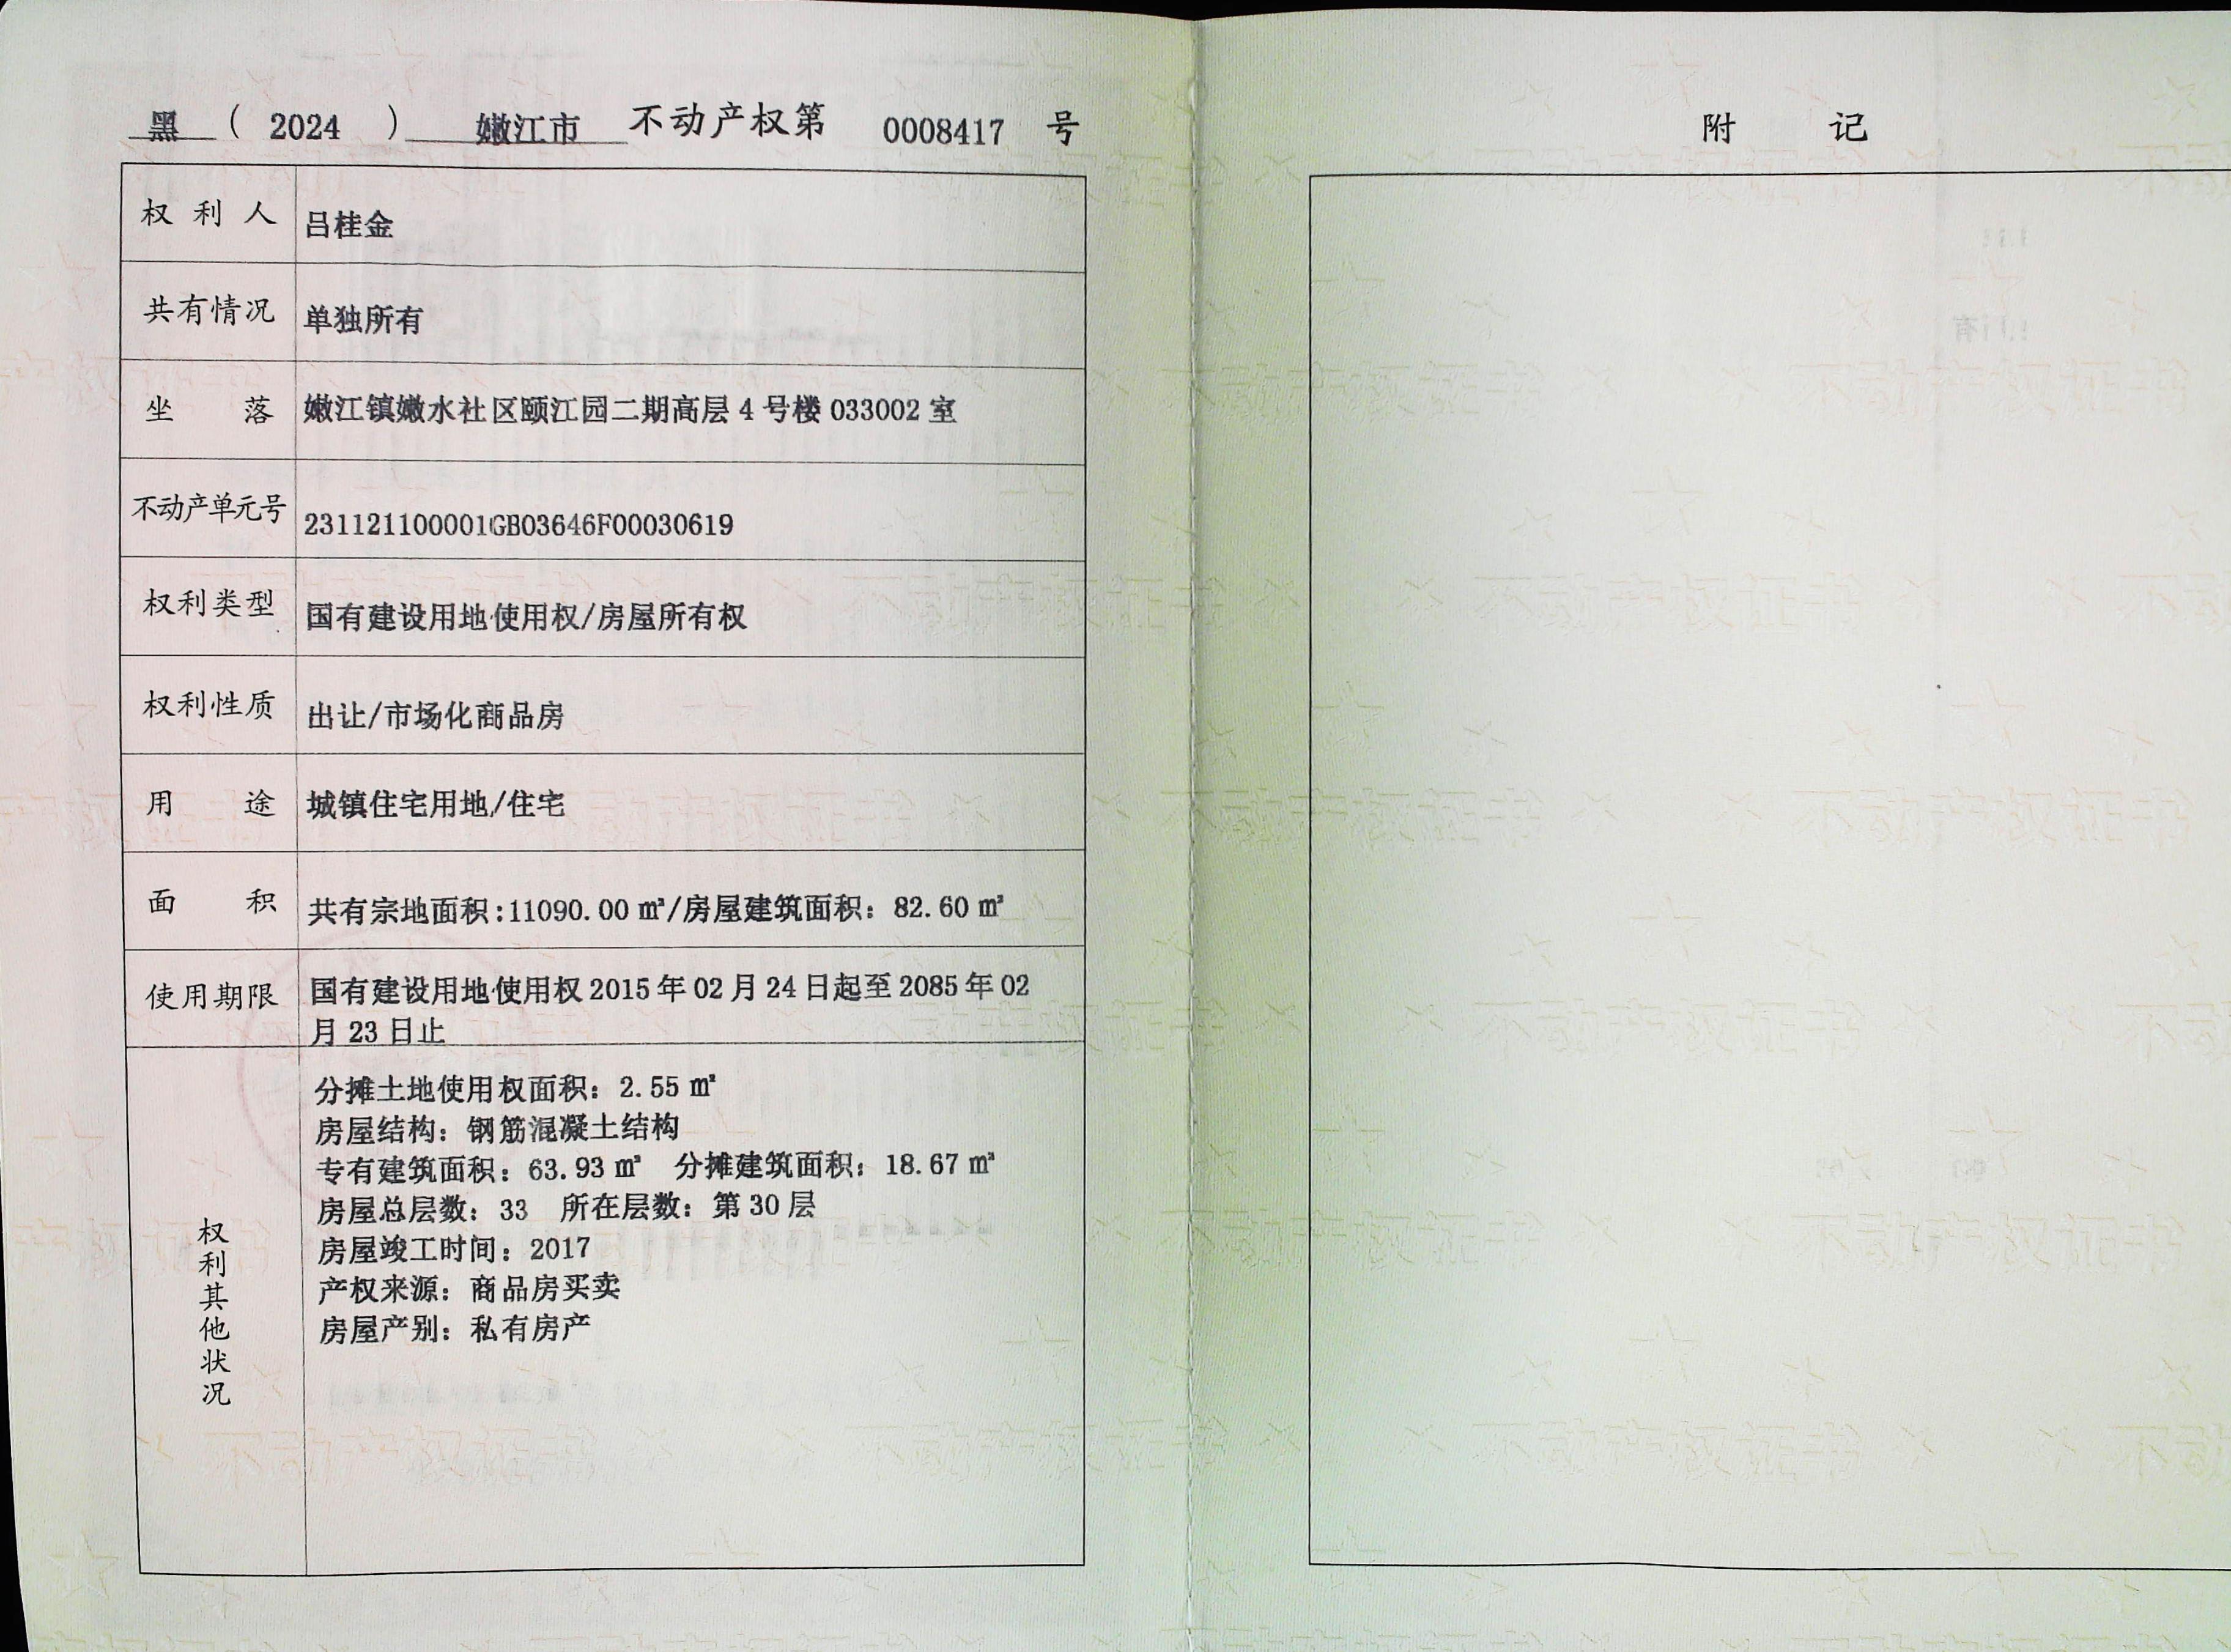 黑 ( 2024 ) 嫩江市 不动产权第 0008417 号
权利人 吕桂金
共有情况 单独所有
坐落 嫩江镇嫩水社区颐江园二期高层 4 号楼 033002 室
不动产单元号 231121100001GB03646F00030619
权利类型 国有建设用地使用权/房屋所有权
权利性质 出让/市场化商品房
用途 城镇住宅用地/住宅
面积 共有宗地面积:11090.00 ㎡/房屋建筑面积: 82.60 ㎡
使用期限 国有建设用地使用权 2015 年 02 月 24 日起至 2085 年 02
月 23 日止
权利其他状况
分摊土地使用权面积: 2.55 ㎡
房屋结构: 钢筋混凝土结构
专有建筑面积: 63.93 ㎡ 分摊建筑面积: 18.67 ㎡
房屋总层数: 33 所在层数: 第 30 层
房屋竣工时间: 2017
产权来源: 商品房买卖
房屋产别: 私有房产
附记